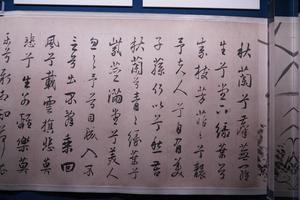 秋蘭兮蘼蕪羅
生兮堂下綠葉兮
素枝芳菲菲兮襲
予夫人兮自有美
子蓀何以兮愁苦
秋蘭兮青青綠葉兮
紫莖滿堂兮美人
忽獨與予兮目成入不
言兮出不辭乘回
風兮載雲旗悲莫
悲兮生別離樂莫
樂兮新相知荷衣